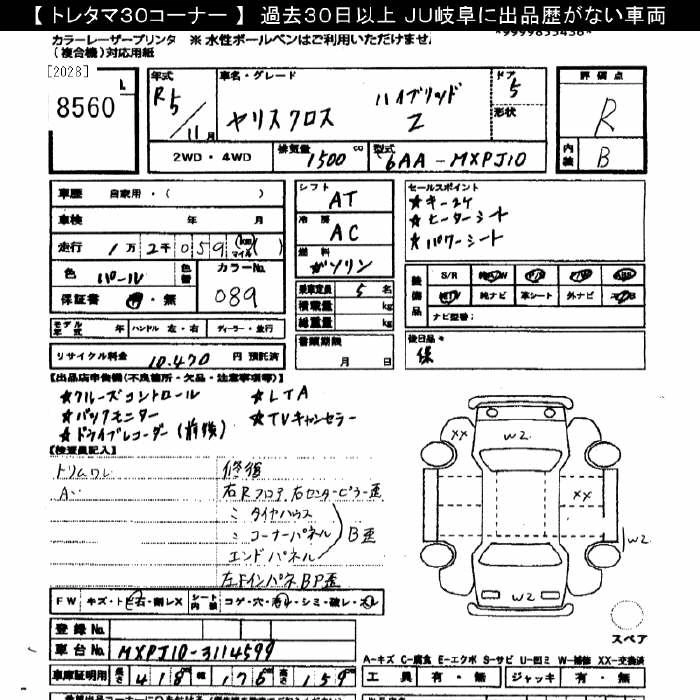 【 トレタマ30コーナー 】 過去30日以上 JU岐阜に出品歴がない車両
カラーレーザープリンタ ※ 水性ボールペンはご利用いただけませ
(複合機)対応用紙
[2028]
8560
年式 R5/11月
車名・グレード ヤリスクロス ハイブリッド Z
ドア 5
形状
評価点 R
内装 B
2WD・4WD
排気量 1500 cc
型式 6AA-MXPJ10
車歴 自家用・( )
車検 年 月
走行 1万2千059 (km マイル)
色 パール 色替
カラーNo. 089
保証書 ・無
モデル年式 年 ハンドル 左・右 ディーラー・並行
リサイクル料金 10.470 円 預託済
シフト AT
冷房 AC
燃料 ガソリン
乗車定員 5 名
積載量 kg
総重量 kg
書類期限 月 日
セールスポイント
★キー2ケ
★ヒーターシート
★パワーシート
装備品 S/R 純A/W P/S P/W ABS
純TV 純ナビ 革シート 外ナビ エアB
ナビ型番:
後日品 保
【出品店申告欄(不良箇所・欠品・注意事項等)】
★クルーズコントロール ★LTA
★バックモニター ★TVキャンセラー
★ドライブレコーダー(前後)
【検査員記入】
トリムワレ
修復
右Rフロア、右センターピラー歪
〃 タイヤハウス
〃 コーナーパネル
エンドパネル
B歪
左FインパネBP歪
FW キズ・トビ石・割レX シート内装 コゲ・穴・汚レ・シミ・破レ・スレ
登録No.
車台No. MXPJ10-3114599
車庫証明用 長さ 418 幅 176 高さ 159
XX W2
XX
W2
W2
スペア
A-キズ C-腐食 E-エクボ S-サビ U-凹ミ W-補修 XX-交換済
工具 有・無 ジャッキ 有・無